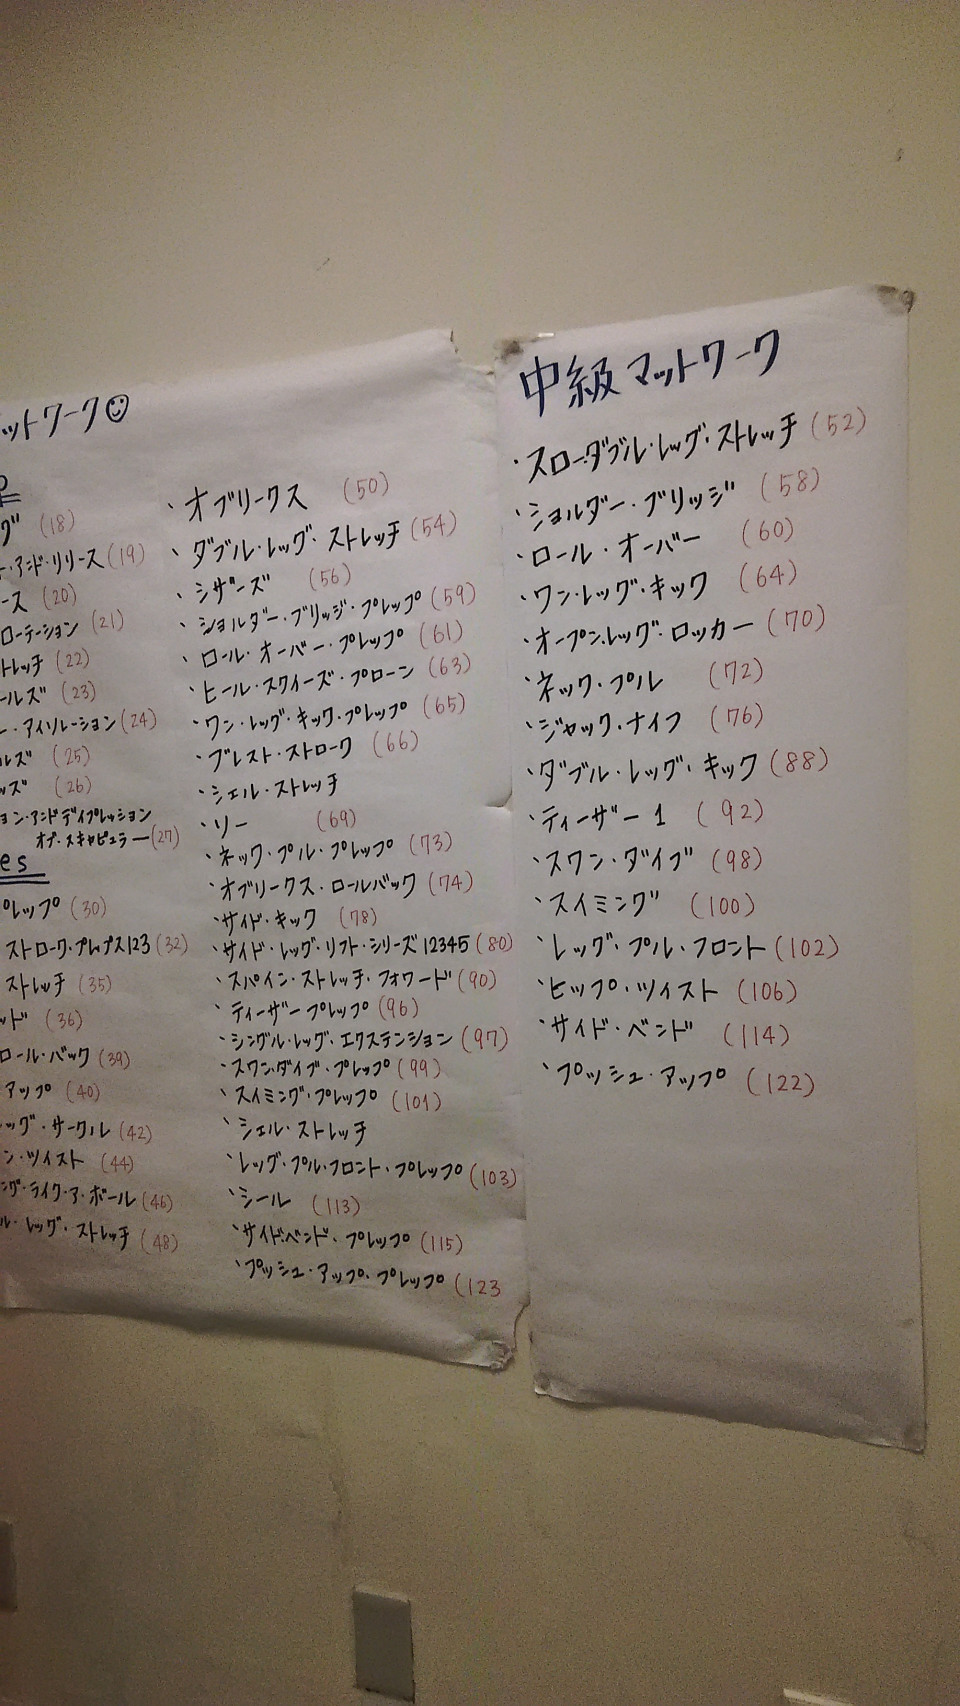 ットワーク☺
グ (18)
ー・アンド・リリース (19)
ース (20)
ローテーション (21)
トレッチ (22)
ールズ (23)
ー・アイソレーション (24)
ルズ (25)
ッズ (26)
ョン・アンドディプレッション
オブ・スキャピュラー (27)
es
プレップ (30)
ストローク・プレプス123 (32)
ストレッチ (35)
ッド (36)
ロール・バック (39)
アップ (40)
ッグ・サークル (42)
ン・ツイスト (44)
ング・ライク・ア・ボール (46)
ル・レッグ・ストレッチ (48)
・オブリークス (50)
・ダブル・レッグ・ストレッチ (54)
・シザーズ (56)
・ショルダー・ブリッジ・プレップ (59)
・ロール・オーバー・プレップ (61)
・ヒール・スクイーズ・プローン (63)
・ワン・レッグ・キック・プレップ (65)
・ブレスト・ストローク (66)
・シェル・ストレッチ
・ソー (69)
・ネック・プル・プレップ (73)
・オブリークス・ロールバック (74)
・サイド・キック (78)
・サイド・レッグ・リフト・シリーズ12345 (80)
・スパイン・ストレッチ・フォワード (90)
・ティーザープレップ (96)
・シングル・レッグ・エクステンション (97)
・スワン・ダイブ・プレップ (99)
・スイミング・プレップ (101)
・シェル・ストレッチ
・レッグ・プル・フロント・プレップ (103)
・シール (113)
・サイド・ベンド・プレップ (115)
・プッシュ・アップ・プレップ (123
中級マットワーク
・スローダブル・レッグ・ストレッチ (52)
・ショルダー・ブリッジ (58)
・ロール・オーバー (60)
・ワン・レッグ・キック (64)
・オープン・レッグ・ロッカー (70)
・ネック・プル (72)
・ジャック・ナイフ (76)
・ダブル・レッグ・キック (88)
・ティーザー1 (92)
・スワン・ダイブ (98)
・スイミング (100)
・レッグ・プル・フロント (102)
・ヒップ・ツイスト (106)
・サイド・ベンド (114)
・プッシュ・アップ (122)